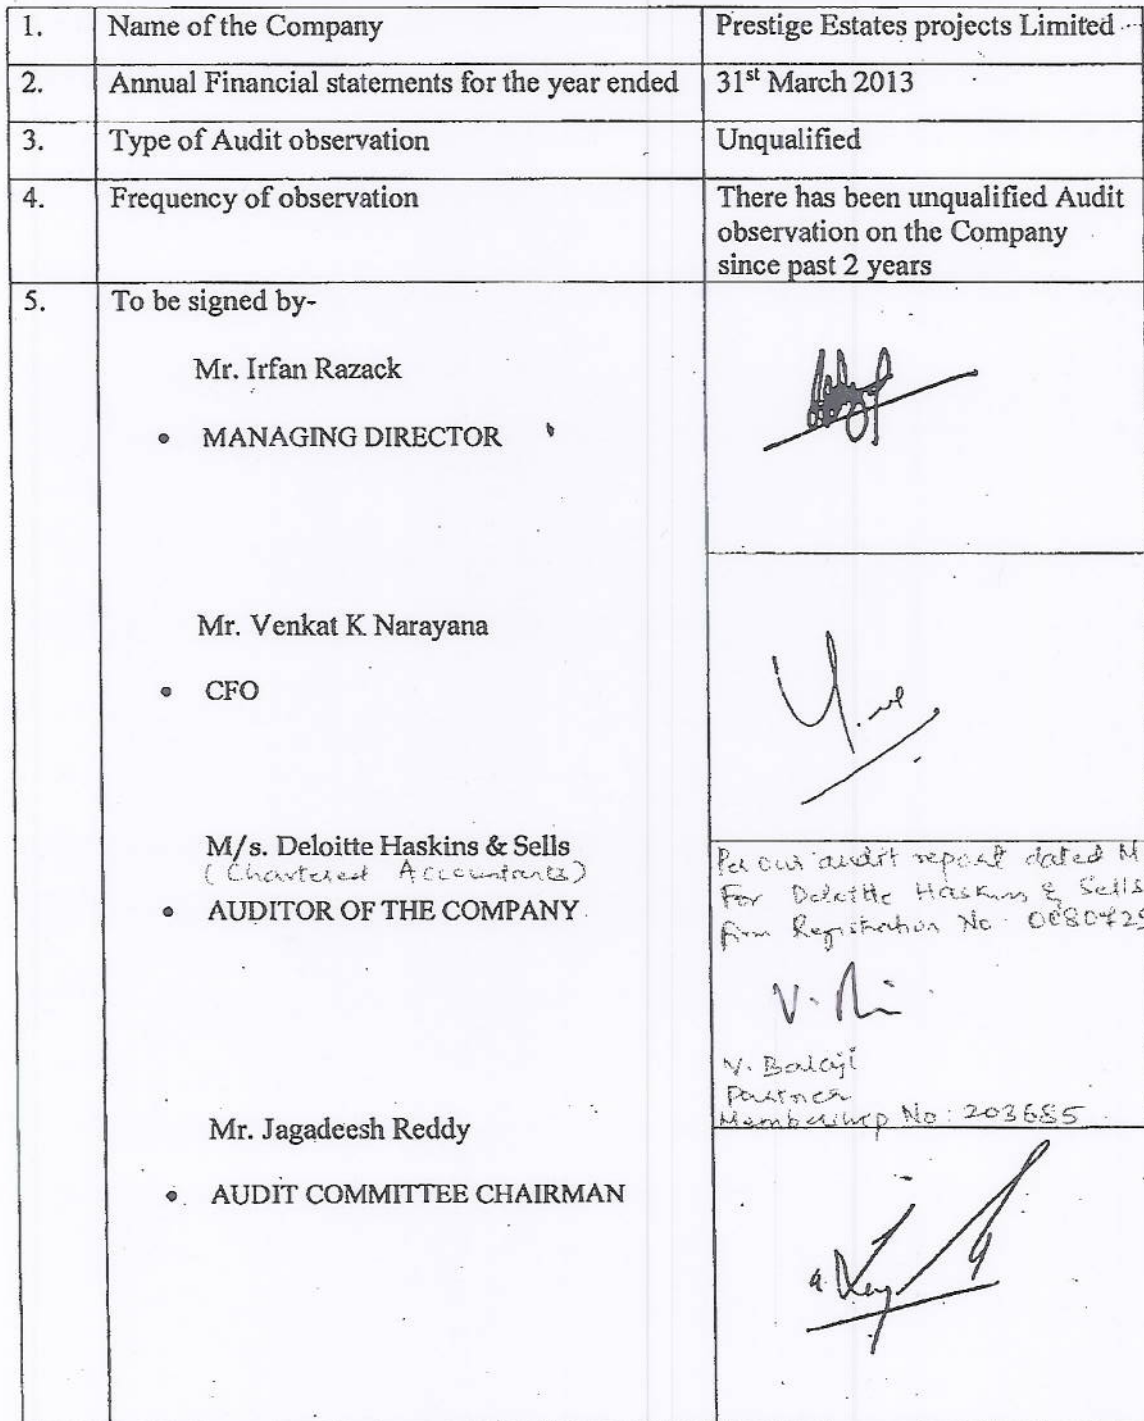 1. Name of the Company Prestige Estates projects Limited
2. Annual Financial statements for the year ended 31st March 2013
3. Type of Audit observation Unqualified
4. Frequency of observation There has been unqualified Audit
observation on the Company
since past 2 years
5. To be signed by-
Mr. Irfan Razack
• MANAGING DIRECTOR
Mr. Venkat K Narayana
• CFO
M/s. Deloitte Haskins & Sells
(Chartered Accountants)
• AUDITOR OF THE COMPANY
Per our audit report dated M
For Deloitte Haskins & Sells
Firm Registration No.
V. Balaji
Partner
Membership No: 203685
Mr. Jagadeesh Reddy
• AUDIT COMMITTEE CHAIRMAN